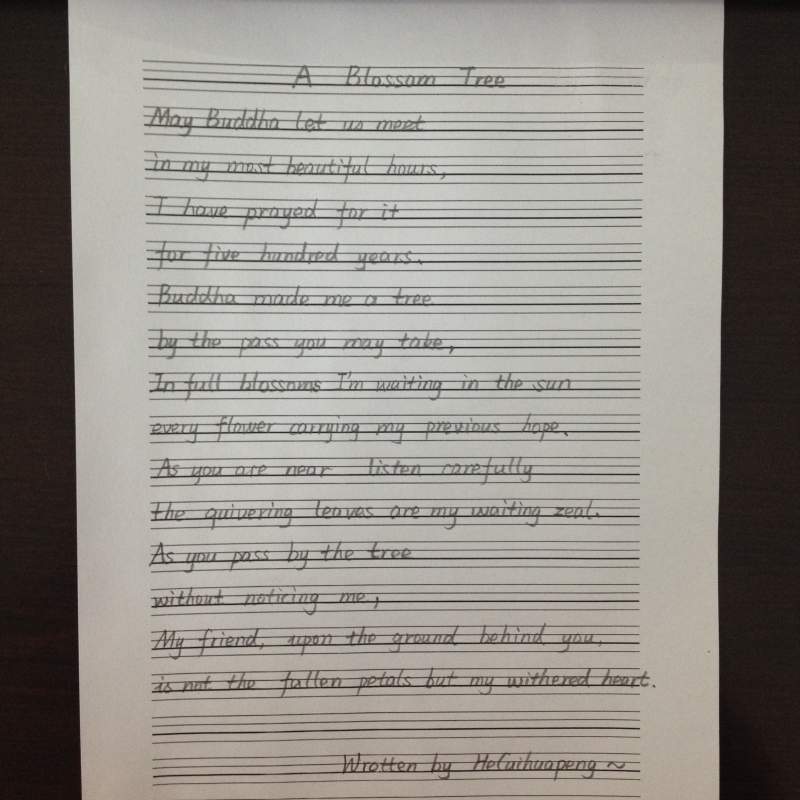 A Blossam Tree
May Buddha let us meet
in my most beautiful hours,
I have prayed for it
for five hundred years.
Buddha made me a tree
by the pass you may take,
In full blossoms I'm waiting in the sun
every flower carrying my previous hope.
As you are near listen carefully
the quivering leaves are my waiting zeal.
As you pass by the tree
without noticing me,
My friend, upon the ground behind you,
is not the fallen petals but my withered heart.
Wrotten by HeCuihuapeng ~